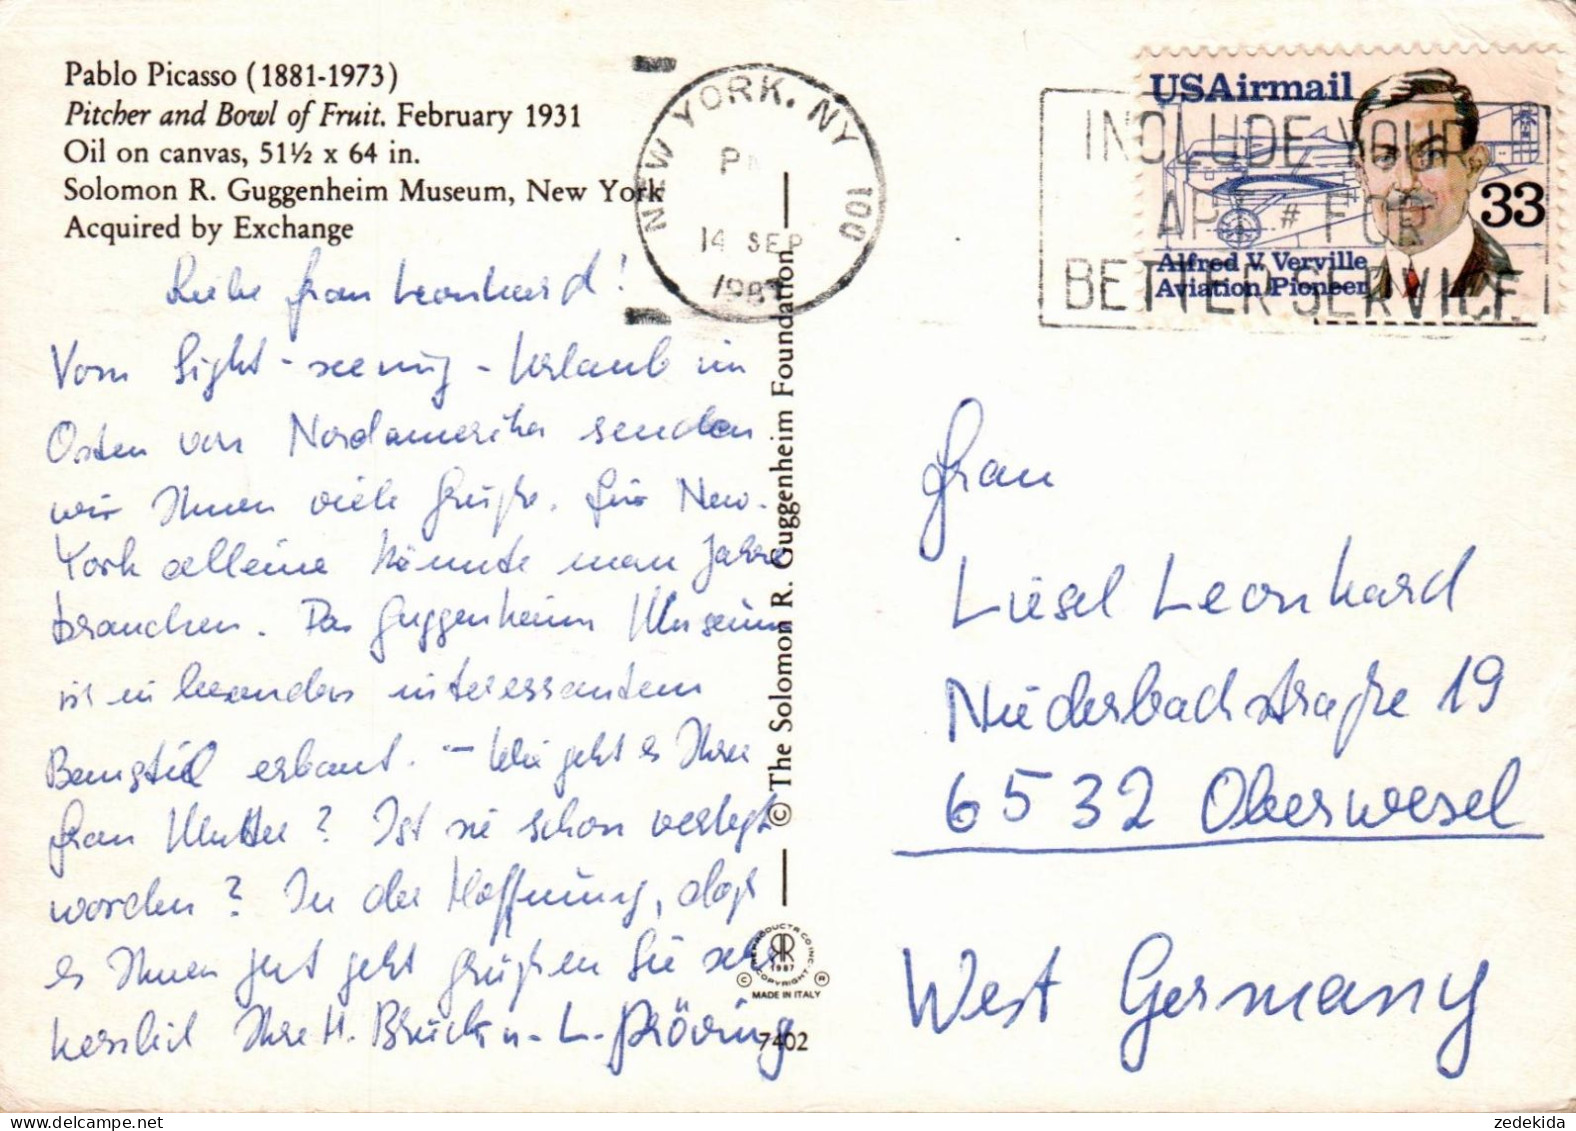 Pablo Picasso (1881-1973)
Pitcher and Bowl of Fruit. February 1931
Oil on canvas, 51½ x 64 in.
Solomon R. Guggenheim Museum, New York
Acquired by Exchange
NEW YORK, NY 100
PM
14 SEP
198
USAirmail
33
Alfred V. Verville
Aviation Pioneer
INCLUDE YOUR
APT # FOR
BETTER SERVICE
Liebe Frau Leonhard!
Vom Sight-seeing-Urlaub im
Osten von Nordamerika senden
wir Ihnen viele Grüße. Für New-
York alleine könnte man Jahre
brauchen. Das Guggenheim Museum
ist in besonders interessantem
Baustil erbaut. – Wie geht es Ihrer
Frau Mutter? Ist sie schon verlegt
worden? In der Hoffnung, daß
es Ihnen gut geht grüßen Sie sehr
herzlich Ihre H. Brück u. L.
© The Solomon R. Guggenheim Foundation
REPRODUCTA CO INC.
RR
1987
COPYRIGHT
C R
MADE IN ITALY
7402
Frau
Liesel Leonhard
Niederbachstraße 19
6532 Oberwesel
West Germany
zedekida